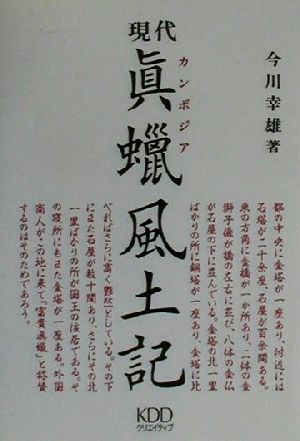 今川幸雄 著
現代
眞蠟風土記
カンボジア
都の中央に金塔が一座あり、付近には
石塔が二十余座、石屋が百余間ある。
東の方角に金橋が一か所あり、二体の金
獅子像が橋の左右に並び、八体の金仏
が石屋の下に並んでいる。金塔の北一里
ばかりの所に銅塔が一座あり、金塔に比
べればさらに高く鬱然としている。その下
にまた石屋が数十間あり、さらにその北
一里ばかりの所が国王の住居である。そ
の寝所にもまた金塔が一座ある。外国
商人がこの地に来て、「富貴真蠟」と称賛
するのはそのためであろう。
KDD
クリエイティブ